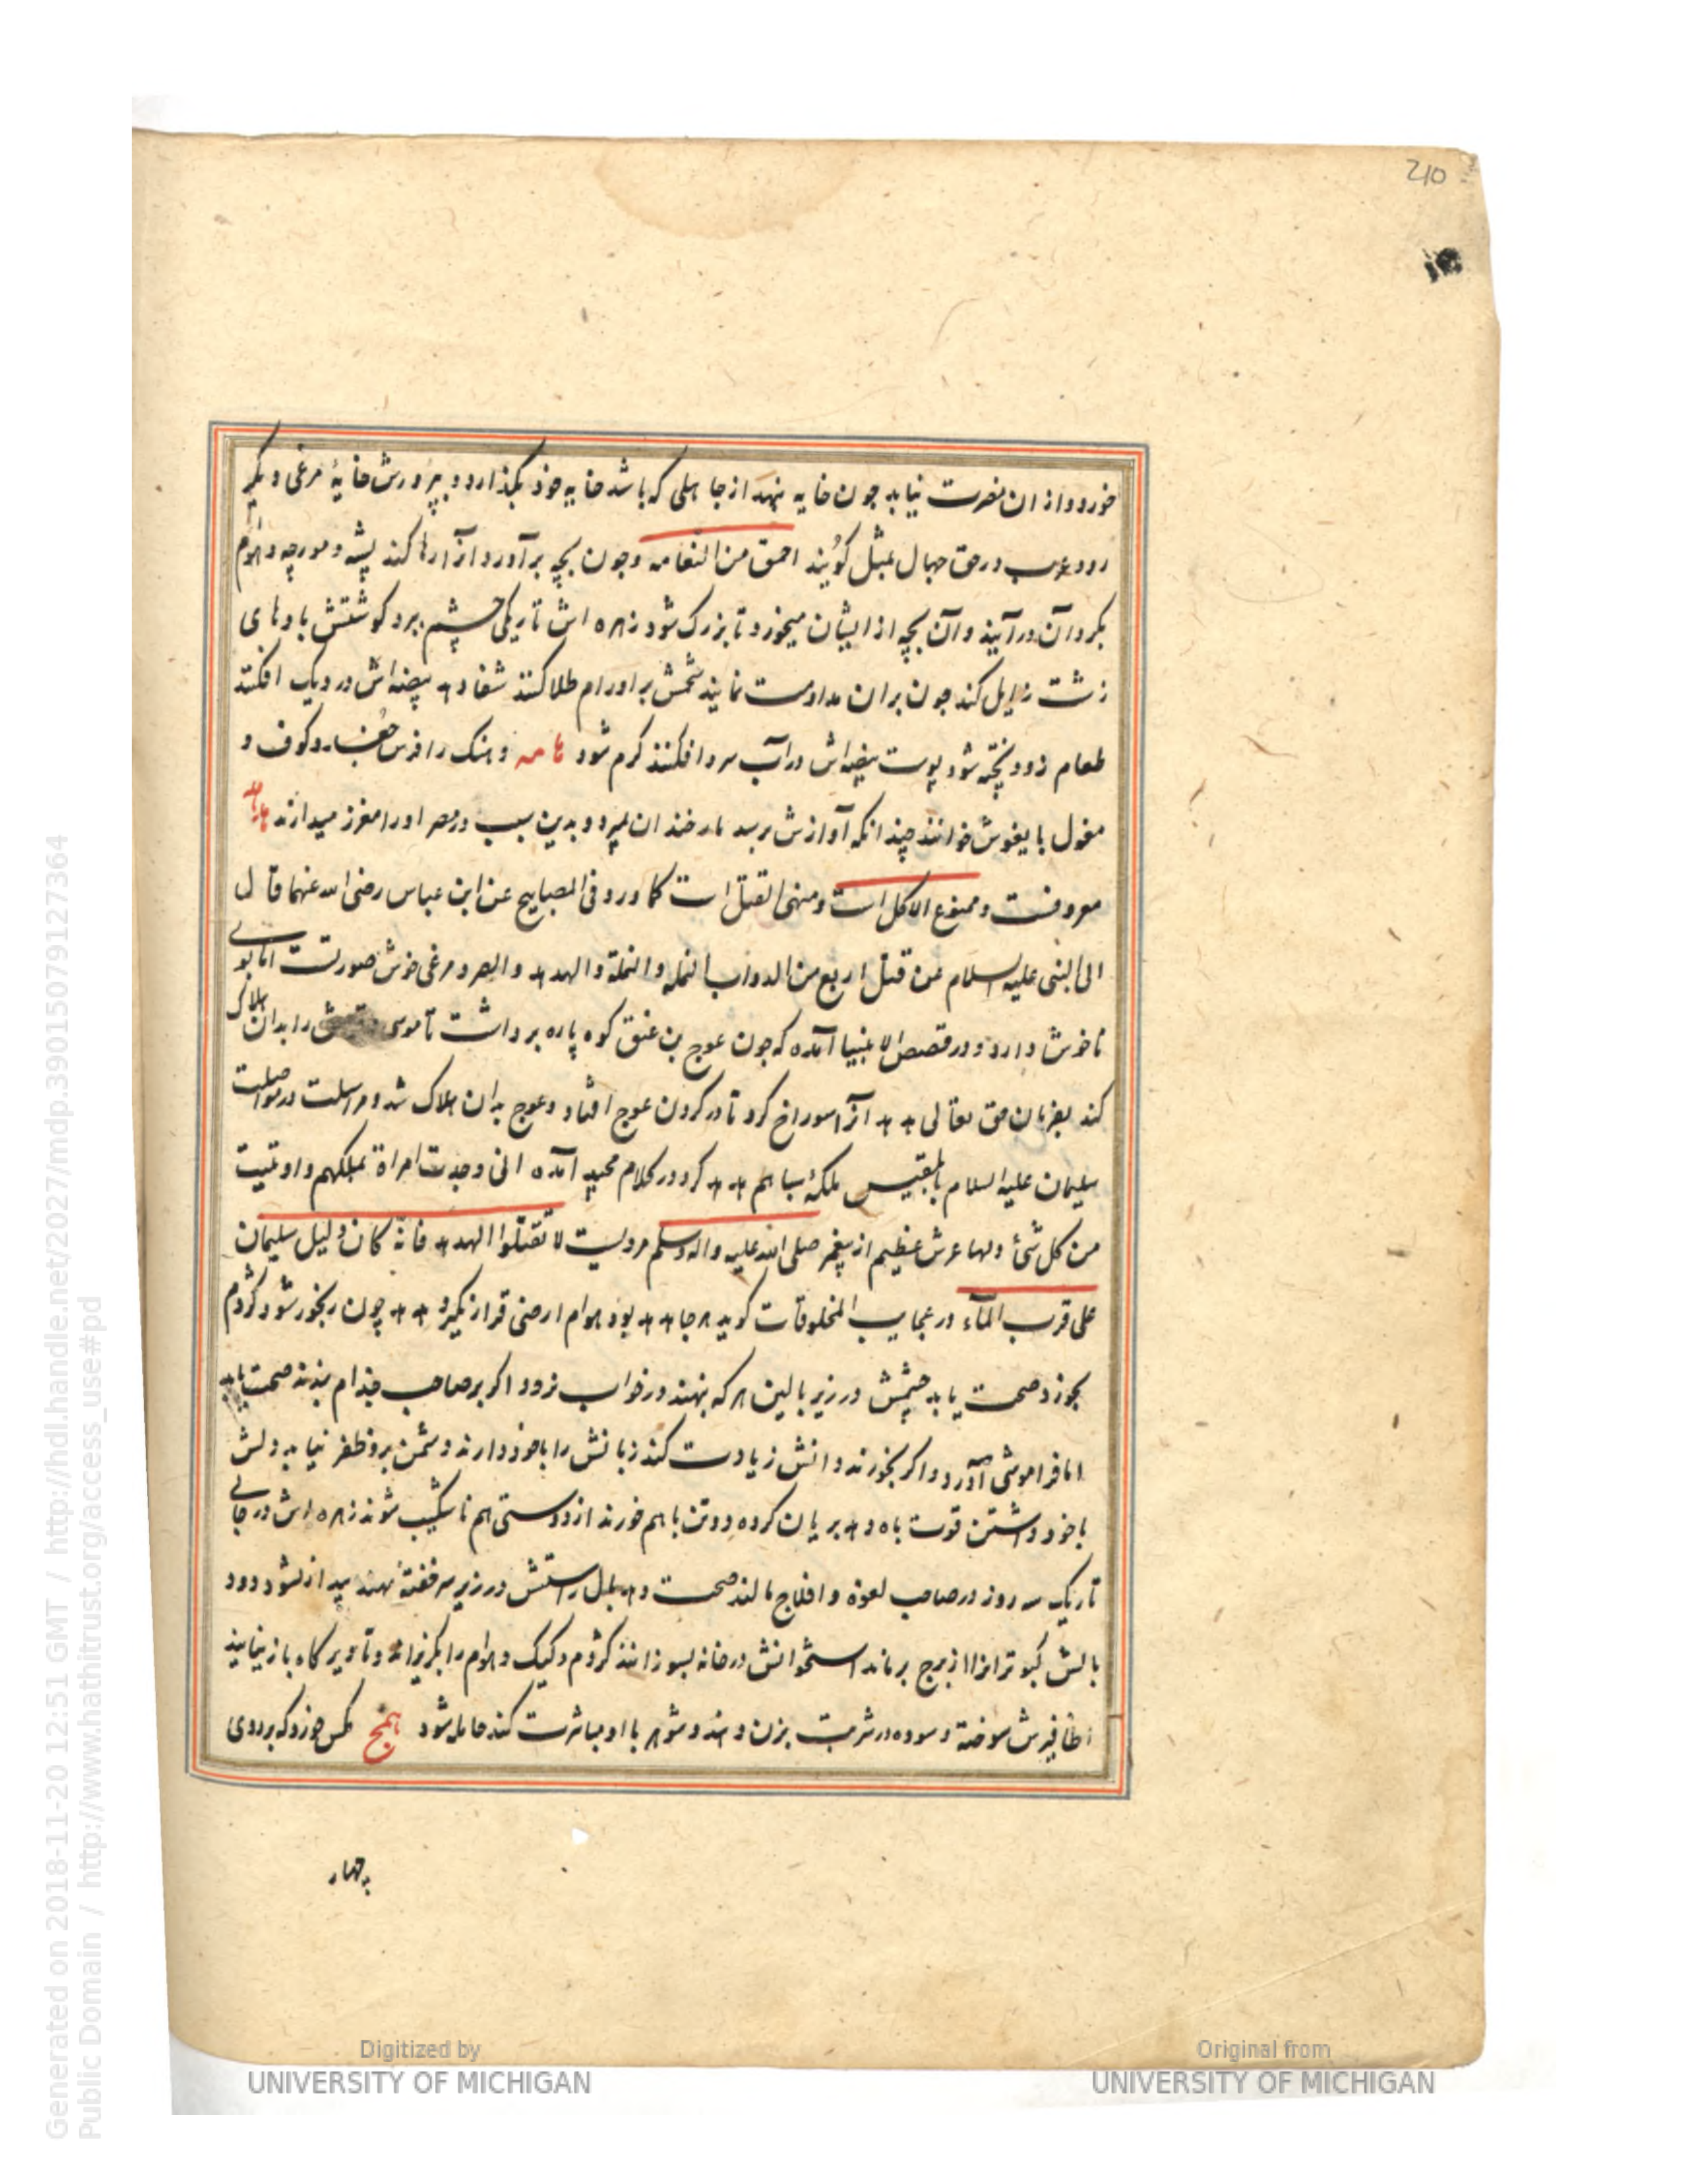 210
خورد و از ان مضرت نیابد چون خایه بنهد از جاهلی که باشد خایه خود بگذارد و بپرورش خایهٔ مرغی دیگر
رود عرب در حق جهال بمثل گویند احمق من النعامه و چون بچه برآورد آنرا رها کند پشه و مورچه و هوام
بگرد آن درآیند و آن بچه از ایشان میخورد تا بزرگ شود زهره اش تاریکی چشم ببرد گوشتش بادهای
زشت زایل کند چون بران مداومت نمایند شحمش بر اورام طلا کنند شفا دهد بیضه اش در دیک افکنند
طعام زود پخته شود پوست بیضه اش در آب سرد افکنند گرم شود هامه و هنک را فرس جغد و کوف و
مغول بایغوش خوانند چندانکه آوازش برسد مار خندان بمیرد و بدین سبب در مصر او را معزز میدارند هدهد
معروفست و ممنوع الاکل است و منهی القتل است کما ورد فی المصابیح عن ابن عباس رضی الله عنهما قال
الی النبی علیه السلام عن قتل اربع من الدواب النمله و النحلة و الهدهد و الصرد مرغی خوش صورتست اما بویی
ناخوش دارد و در قصص الانبیا آمده که چون عوج بن عنق کوه پاره برداشت تا موسی و قومش را بدان هلاک
کند بفرمان حق تعالی هدهد آنرا سوراخ کرد تا در گردن عوج افتاد و عوج بدان هلاک شد و مراسلت در مواصلت
سلیمان علیه السلام با بلقیس ملکهٔ سبا هم هدهد کرد در کلام مجید آمده انی وجدت امراة تملکهم و اوتیت
من کل شئ ولها عرش عظیم از پیغمبر صلی الله علیه واله وسلم مرویست لا تقتلوا الهدهد فانه کان دلیل سلیمان
علی قرب المآء در عجایب المخلوقات گوید هر جا هدهد بود هوام ارضی قرار نگیرد هدهد چون رنجور شود کژدم
بخورد صحت یابد چشمش در زیر بالین هر که بنهند در خواب نرود اگر بر صاحب جذام بندند صحت یابد
اما فراموشی آورد و اگر بخورند دانش زیادت کند زبانش را با خود دارند دشمن برو ظفر نیابد دلش
با خود داشتن قوت باه دهد بریان کرده دو تن با هم خورند از دوستی هم ناشکیب شوند زهره اش در جایی
تاریک سه روز در صاحب لقوه و افلاج مالند صحت دهد بال راستش در زیر سر خفته نهند بیدار نشود دود
بالش کبوترانرا از برج برماند استخوانش در خانه بسوزانند کژدم و کیک و هوام را بگریزاند و تا دیرگاه باز نیایند
اظافیرش سوخته و سوده در شربت بزن دهند و شوهر با او مباشرت کند حامله شود همج مگس خوردکه بر روی
بهار
Digitized by
UNIVERSITY OF MICHIGAN
Original from
UNIVERSITY OF MICHIGAN
Generated on 2018-11-20 12:51 GMT / http://hdl.handle.net/2027/mdp.39015079127364
Public Domain / http://www.hathitrust.org/access_use#pd